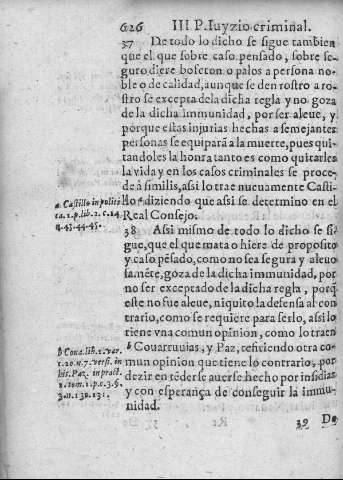 626 III P. Iuyzio criminal.
37 De todo lo dicho se sigue tambien
que el que sobre caso pensado, sobre se-
guro diere bofeton o palos a persona no-
ble o de calidad, aunque se den rostro a ro-
stro se excepta dela dicha regla y no goza
de la dicha immunidad, por ser aleue, y
porque estas injurias hechas a semejantes
personas se equipará a la muerte, pues qui-
tandoles la honra tanto es como quitarles
la vida y en los casos criminales se proce-
de à similis, assi lo trae nueuamente Casti-
llo a diziendo que assi se determino en el
Real Consejo.
a Castillo in politi
ca. 2. p. lib. 2. c. 14
n. 43. 44. 45.
38 Assi mismo de todo lo dicho se si-
gue, que el que mata o hiere de proposito
y caso pésado, como no sea segura y aleuo
saméte, goza de la dicha immunidad, por
no ser exceptado de la dicha regla, porq̃
este no fue aleue, ni quito la defensa al con
trario, como se requiere para serlo, assi lo
tiene vna comun opinion, como lo traen
b Couarruuias, y Paz, refiriendo otra co-
mun opinion que tiene lo contrario, por
dezir en téderse auerse hecho por insidias
y con esperança de conseguir la immu-
nidad.
b Coua. lib. 2. var.
c. 20. n. 7. versi. in
his. Paz. in pract.
1. tom. 1. p. c. 3. §.
3. n. 130. 131.
39 De